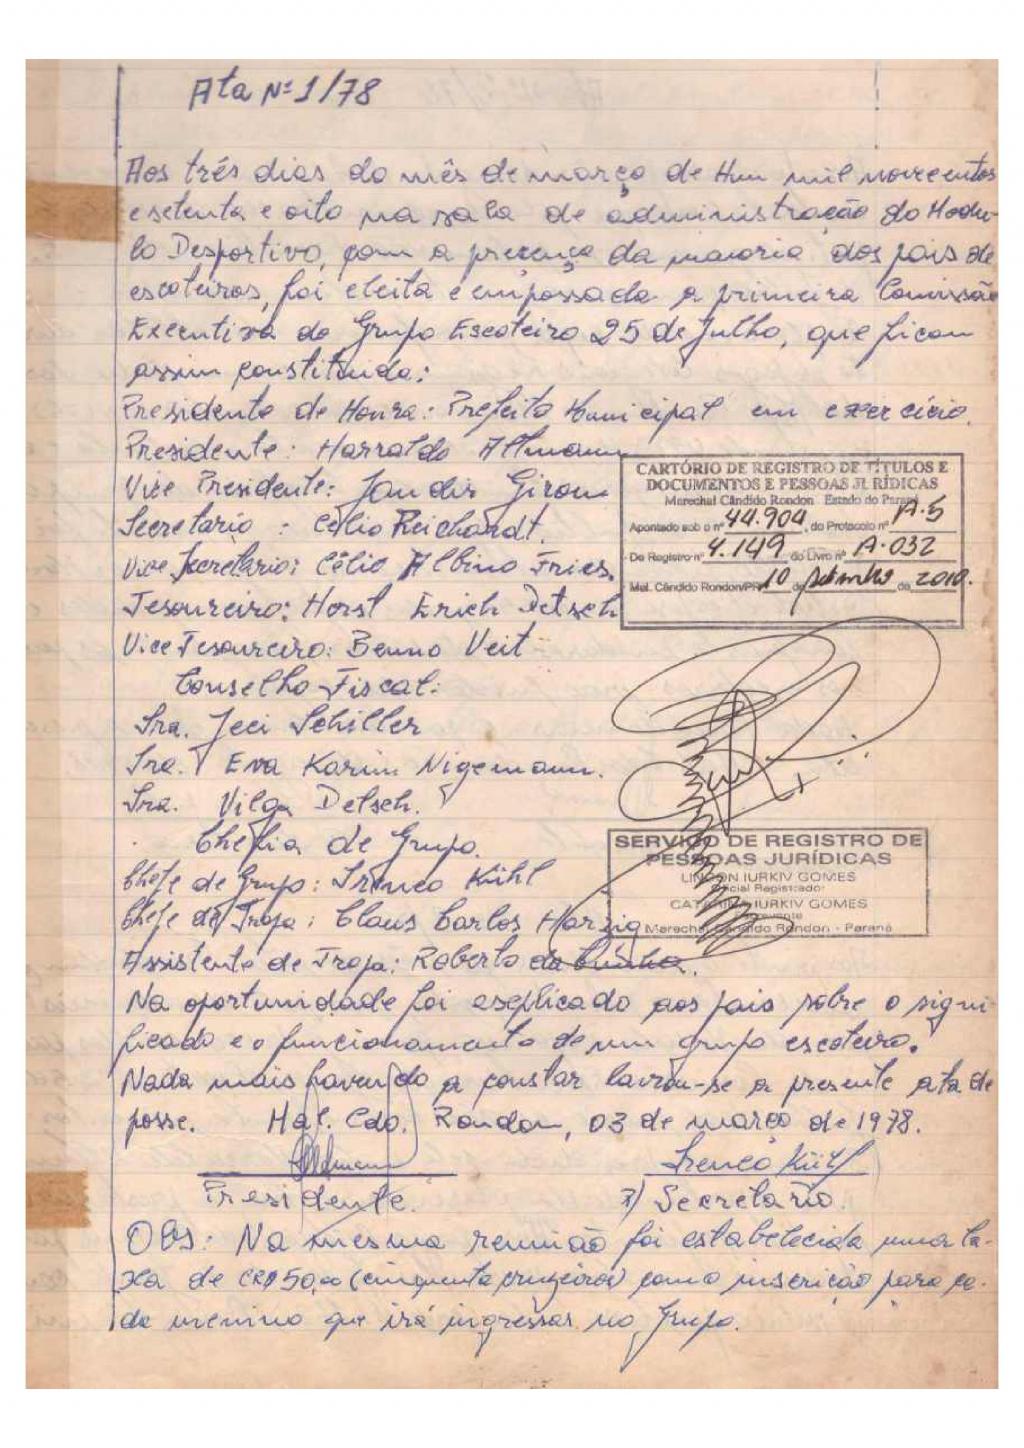 Ata Nº 1/78
Aos três dias do mês de março de Hum mil novecentos
e setenta e oito na sala de administração do Modu-
lo Desportivo, com a presença da maioria dos pais de
escoteiros, foi eleita e empossada a primeira Comissão
Executiva do Grupo Escoteiro 25 de Julho, que ficou
assim constituida:
Presidente de Honra: Prefeito Municipal em exercício.
Presidente: Harraldo Altmann
Vice Presidente: Jandir Girom
Secretario : Célio Reichardt.
Vice Secretario: Célio Albino Fries.
Tesoureiro: Horst Erich Detsch
Vice Tesoureiro: Benno Veit
Conselho Fiscal:
Sra. Jeci Schiller
Sra. Eva Karim Nigemann.
Sra. Vilga Detsch.
Chefia de Grupo.
Chefe de Grupo: Ireneo Kühl
Chefe de Tropa: Claus Carlos Harzig
Assistente de Tropa: Roberto da Cunha.
Na oportunidade foi explicado aos pais sobre o signi-
ficado e o funcionamento de um grupo escoteiro.
Nada mais havendo a constar lavrou-se a presente ata de
posse. Mal. Cdo. Rondon, 03 de março de 1978.
Altmann Ireneo Kühl
Presidente. Secretario.
OBS: Na mesma reunião foi estabelecida uma ta-
xa de CR$ 50,00 (cinquenta cruzeiros) como inscrição para ca-
da menino que irá ingressar no Grupo.
CARTÓRIO DE REGISTRO DE TÍTULOS E
DOCUMENTOS E PESSOAS JURÍDICAS
Marechal Cândido Rondon Estado do Paraná
Apontado sob o nº 44.904, do Protocolo nº A-5
De Registro nº 4.149 do Livro nº A-032
Mal. Cândido Rondon/PR 10 de setembro de 2010.
SERVIÇO DE REGISTRO DE
PESSOAS JURÍDICAS
IURKIV GOMES
Oficial Registrador
IURKIV GOMES
Escrevente
Marechal Cândido Rondon - Paraná